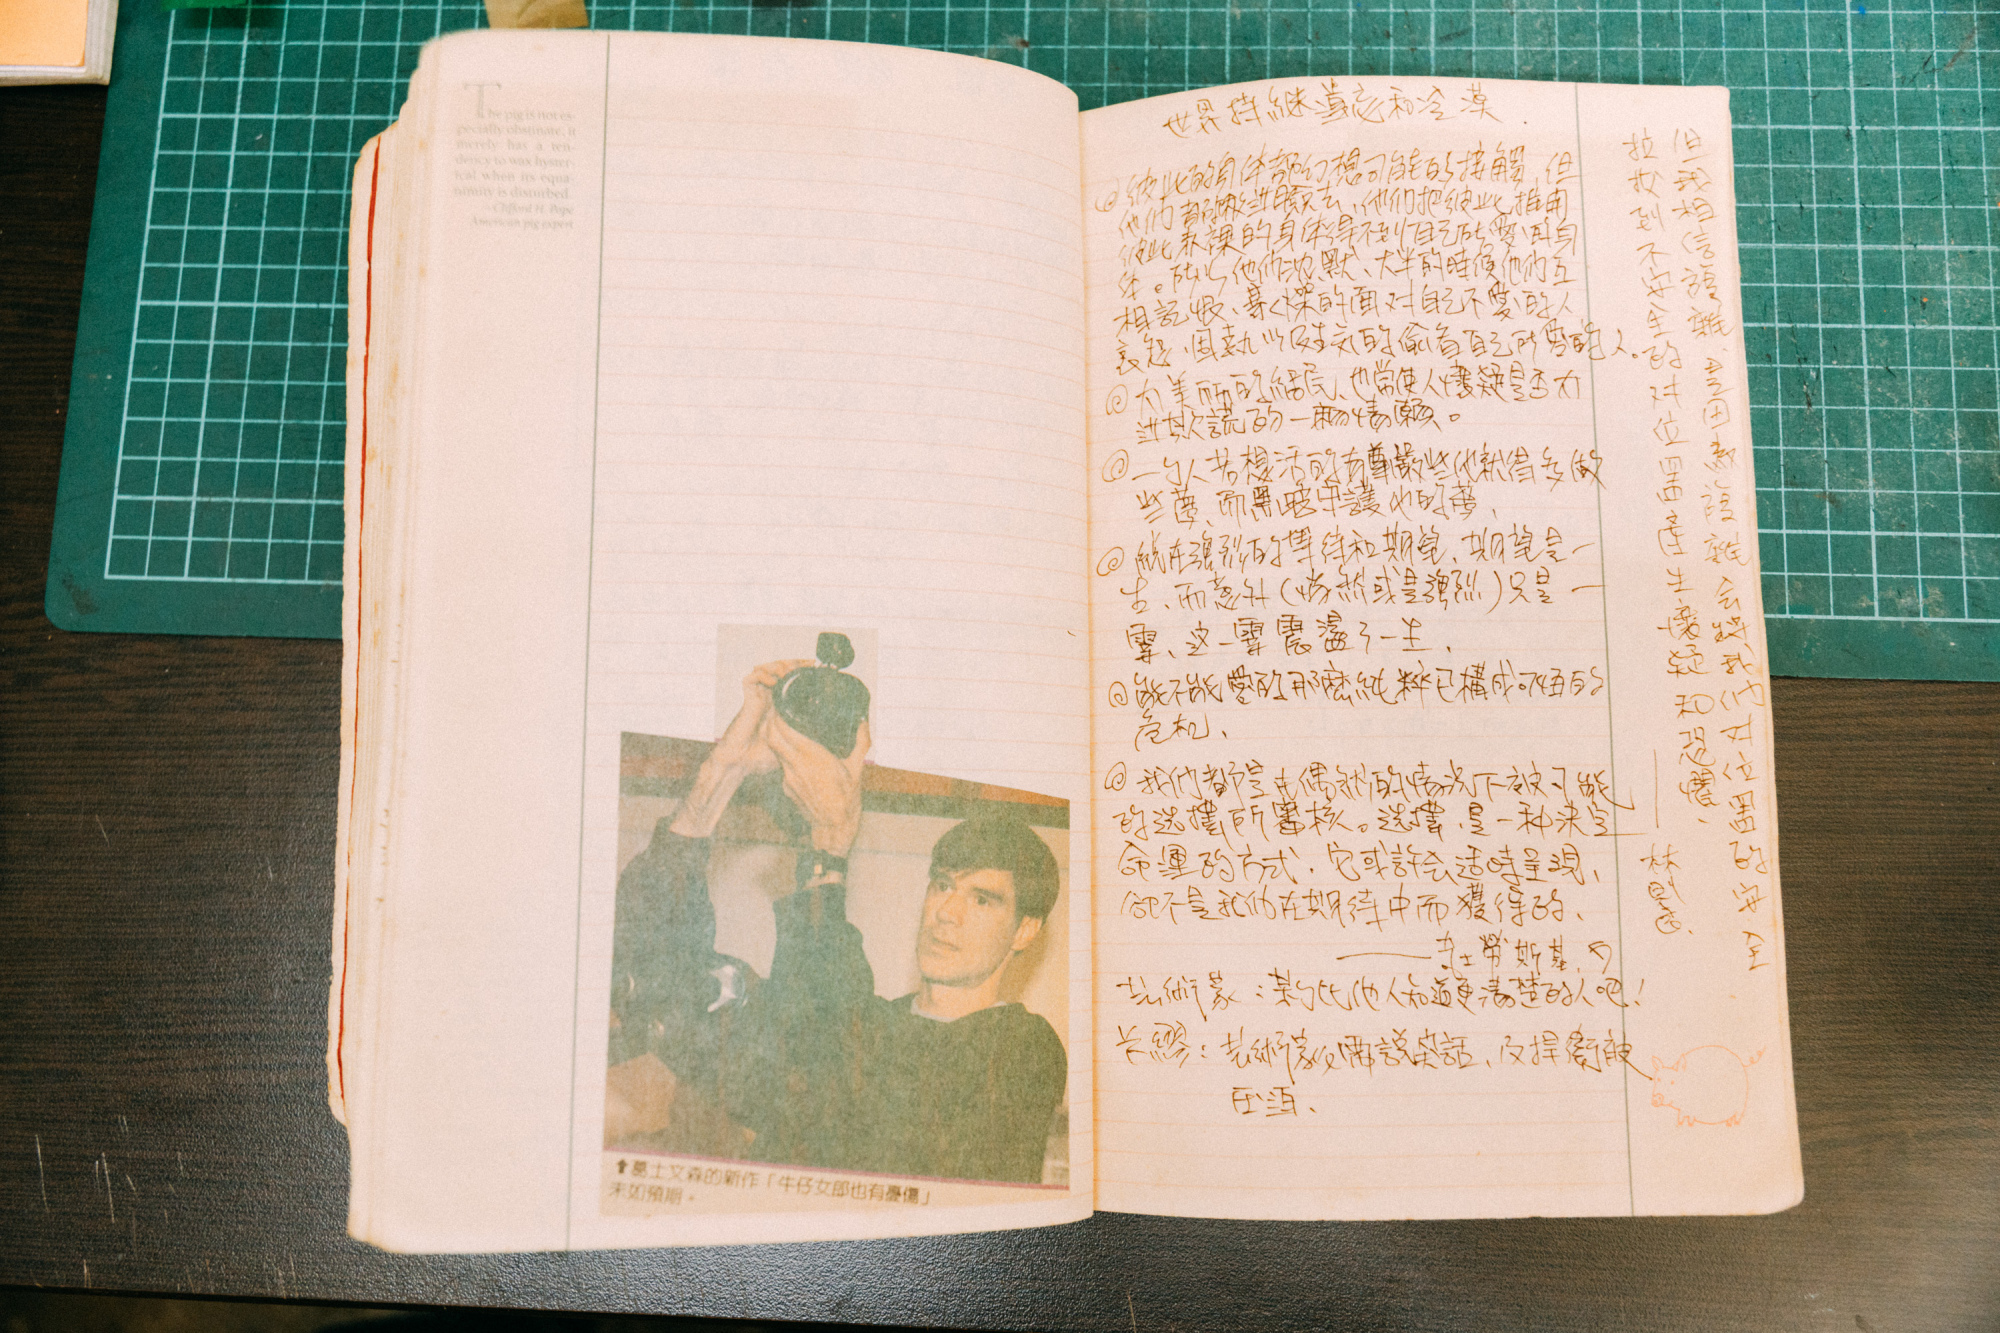 The pig is not es-
pecially obstinate, it
merely has a ten-
dency to wax hyster-
ical when its equa-
nimity is disturbed.
- Clifford H. Pope
American pig expert
⬆葛士文森的新作「牛仔女郎也有憂傷」
未如預期。
世界持繼善忘和冷漠.
彼此的身体都幻想可能的接觸,但
他们都 他们把彼此推開
彼此 裸的身体得不到自己所愛的身
体。所以他们沈默、大半的時候他們互
相記恨、 的面对自己不愛的人
哀怨、固執 的偷看自己所愛的人。
太美丽的結局、也常使人懷疑是否
謊的一種情願。
一个人若想活的有尊嚴些他就得多做
些夢、而黑暗守護他的夢、
總在强烈的等待和期望、期望是一
生、而意外(悄然或是强烈)只是一
霎、这一霎震盪了一生、
能不能愛的那麼純粹已構成 的
危机、
我们都是在偶然的情況下被可能
的选擇所審核。选擇、是一种決定
命運的方式、它或許会适時呈現、
卻不是我们在期待中而獲得的、
—— 斯基、
芸術家:某个比他人知道更清楚的人吧!
芸術家 說笑話、
但我相信誤離 是因為誤離会將我们对位置的安全
拉扯到不安全的对位置產生懷疑和恐懼、
—— 林